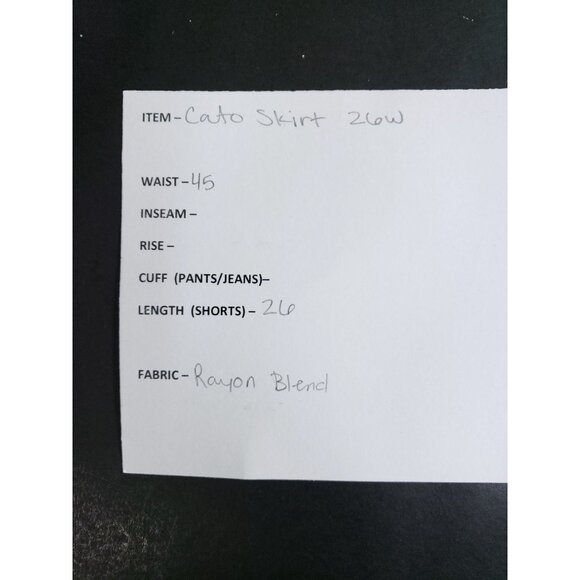 ITEM – Cato Skirt 26W
WAIST – 45
INSEAM –
RISE –
CUFF (PANTS/JEANS)–
LENGTH (SHORTS) – 26
FABRIC – Rayon Blend